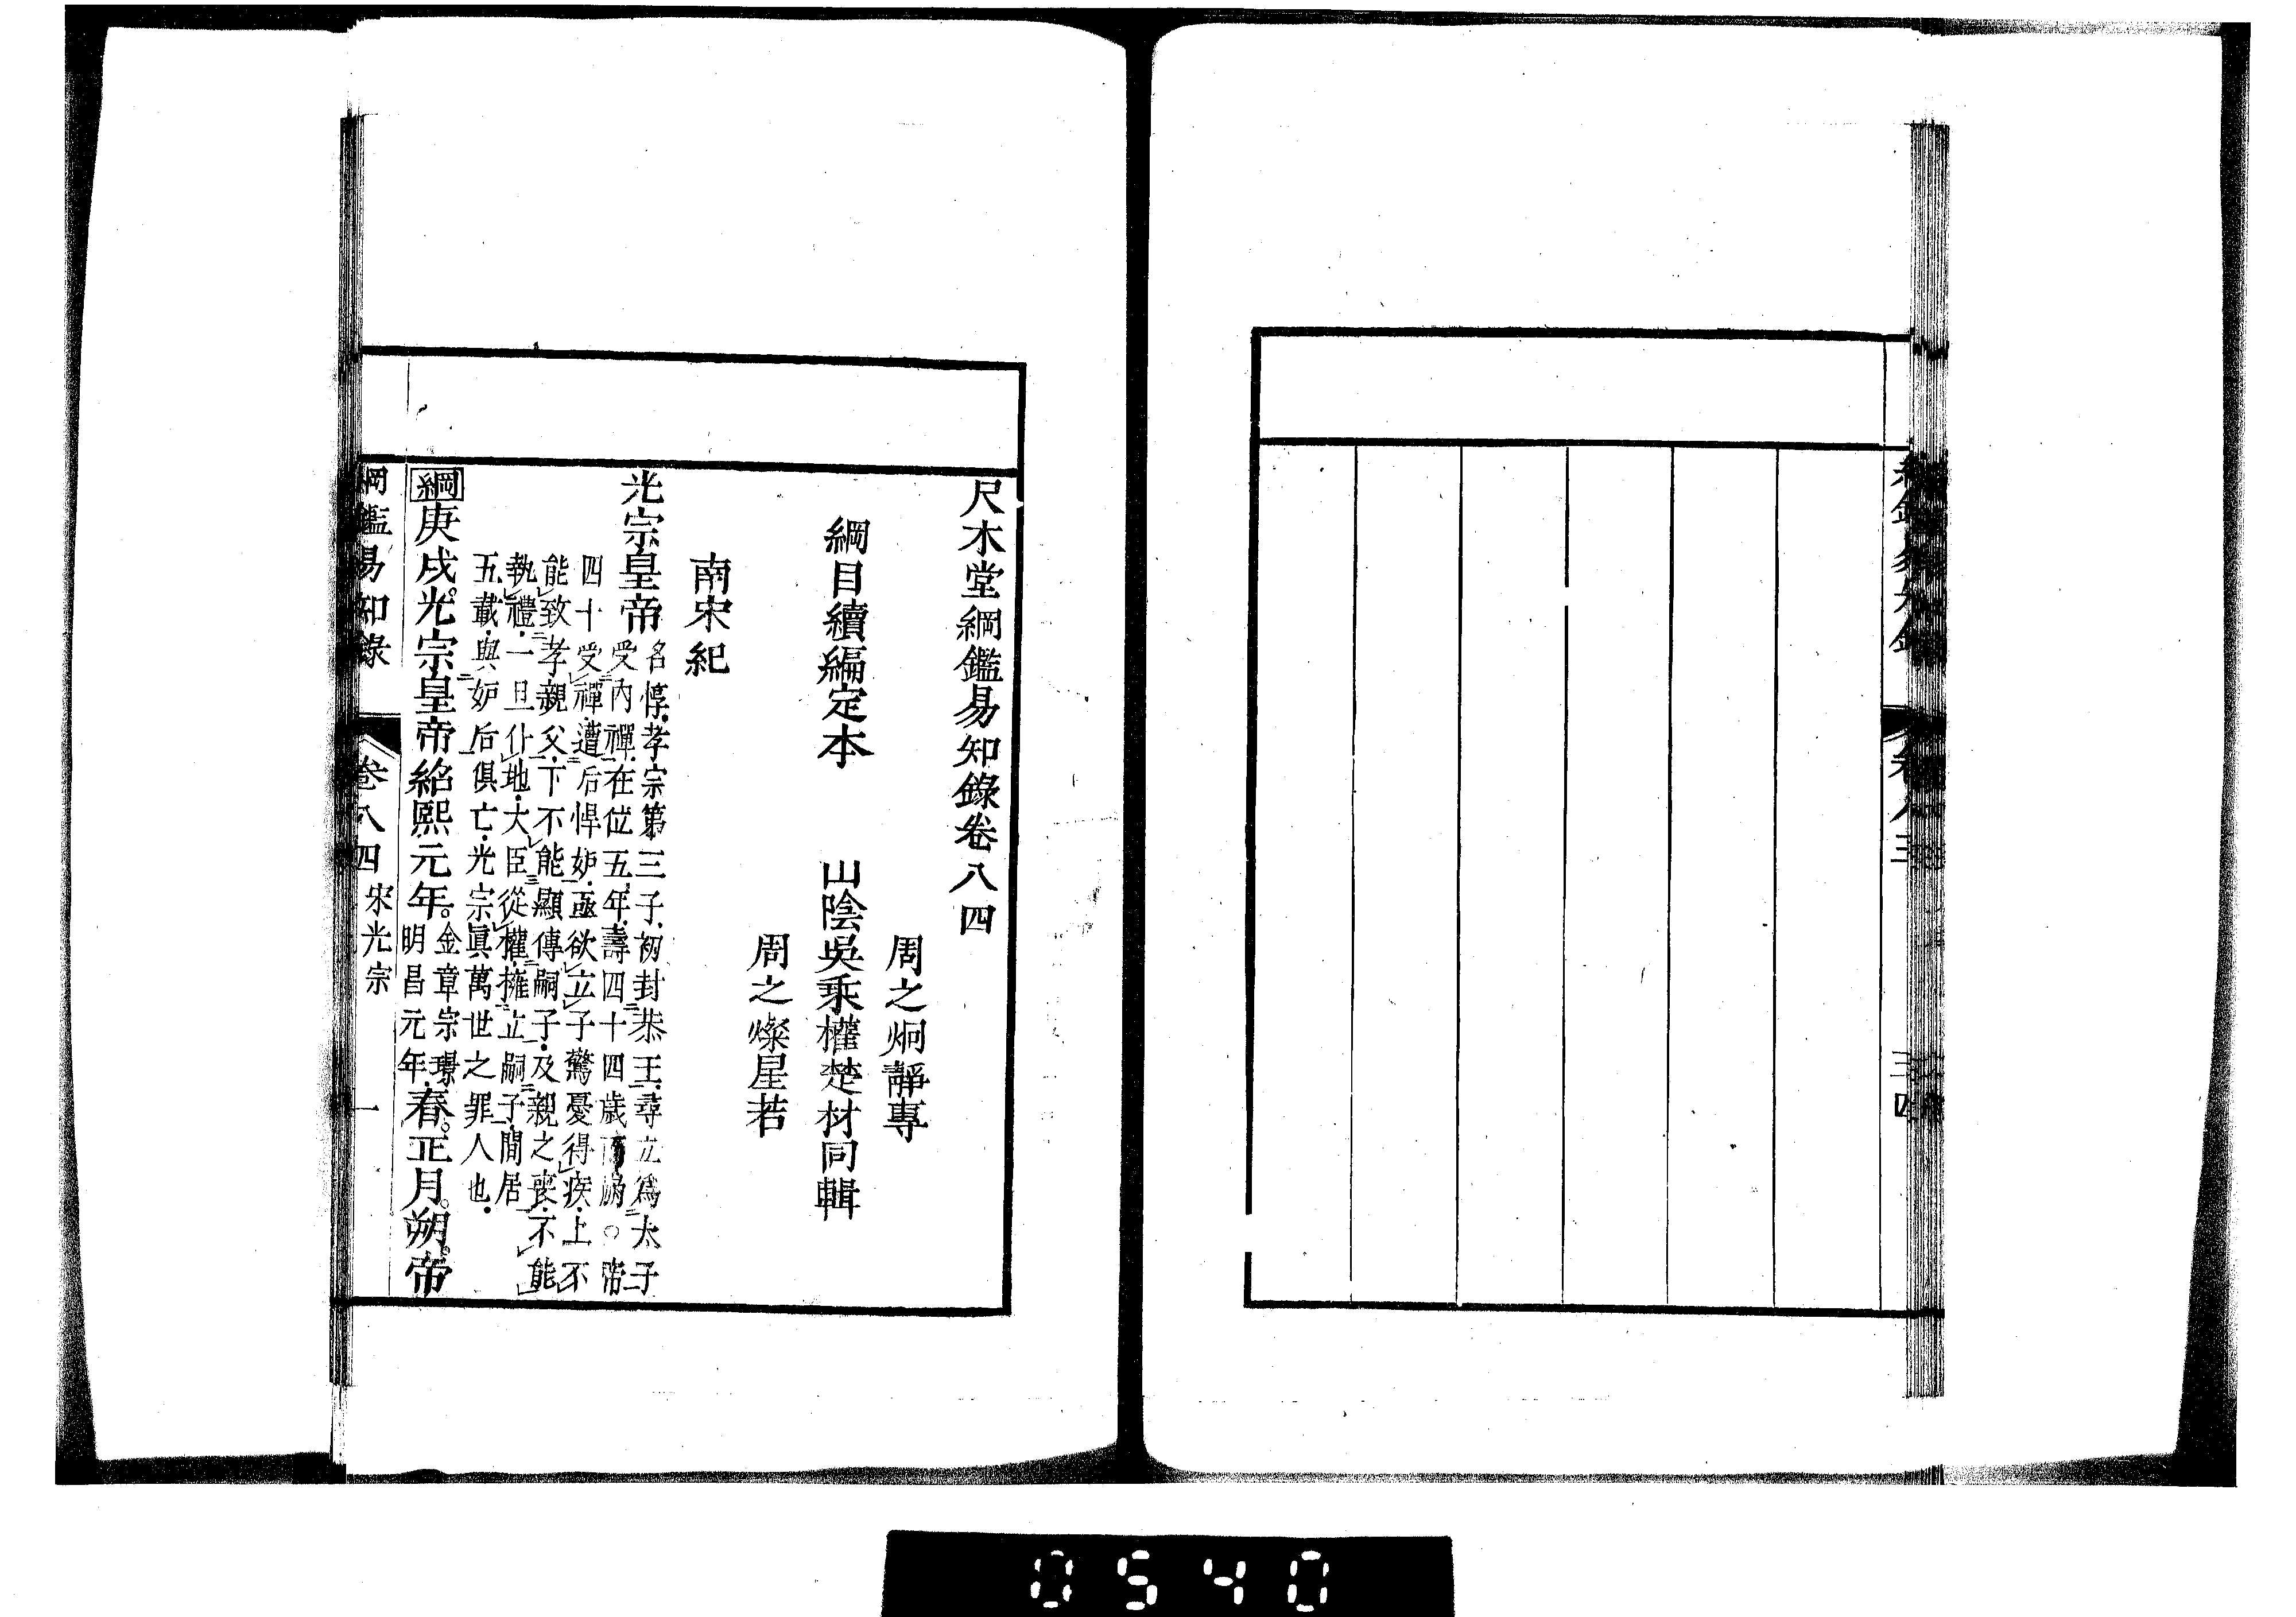 尺木堂綱鑑易知錄卷八四
周之炯靜專
綱目續編定本　山陰吳乘權楚材同輯
周之燦星若
南宋紀
光宗皇帝
名惇孝宗第三子初封恭王尋立爲太子
受內禪在位五年壽四十四歲〇帝
四十受禪遭后悍妒亟欲立子驚憂得疾上不
能致孝親父下不能顯傳嗣子及親之喪不能
執禮一旦仆地大臣從權擁立嗣子閒居
五載與妒后俱亡光宗眞萬世之罪人也
綱庚戌光宗皇帝紹熙元年
金章宗璟
明昌元年
春正月朔帝
綱鑑易知錄　卷八四　宋光宗　一
0540